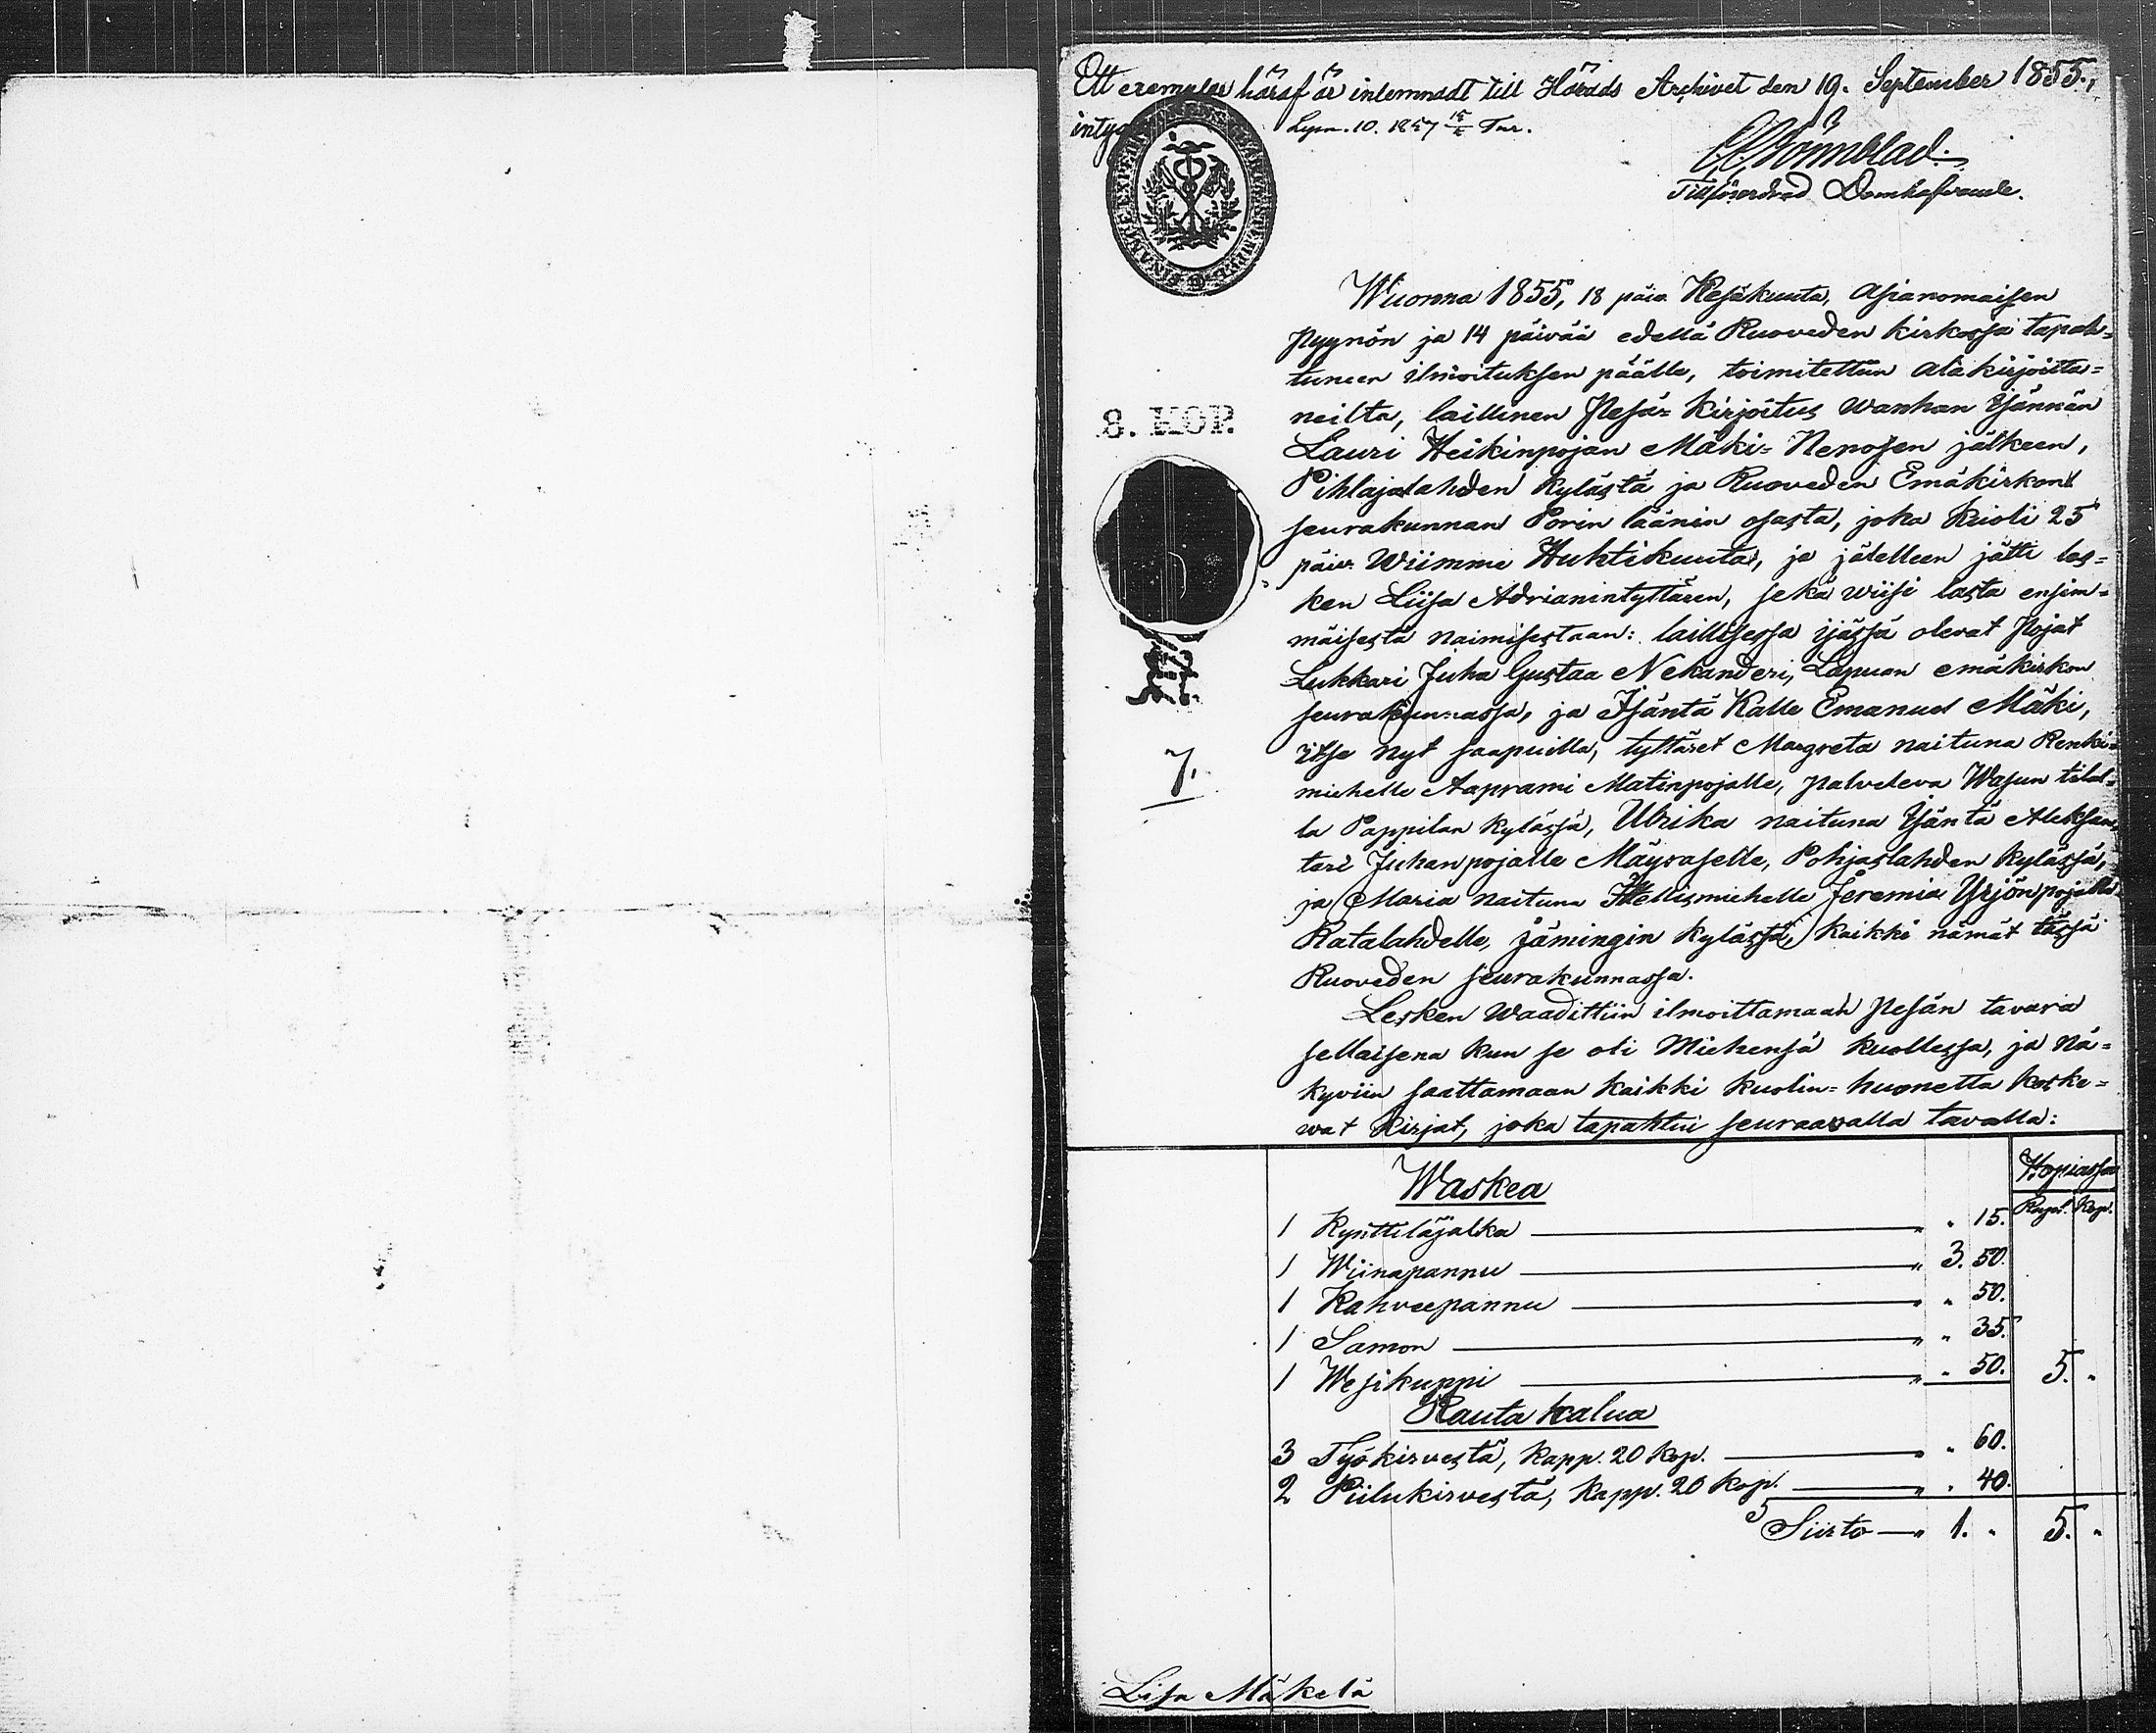 Ett exemplar häraf är inlemnadt till Härads Archivet den 19. September 1855.,
intyg
Tillförordnad Domhafvande.
8. KOP.
7.
Wuonna 1855, 18 päiv. Kesäkuuta, Asianomaisen
Pyynön ja 14 päivää edellä Ruoveden kirkossa tapah=
tuneen ilmoituksen päälle, toimitettiin alakirjoitta=
neilta, laillinen Pesä= kirjoitus wanhan Isännän
Lauri Heikinpojan Mäki= Nenosen jälkeen,
Pihlajalahden kylästä ja Ruoveden Emäkirkon
seurakunnan Porin läänin osasta, joka kuoli 25
päiv. Wiimme Huhtikuuta, ja jälelleen jätti les=
ken Liisa Adrianintyttären, sekä wiisi lasta ensim=
mäisestä naimisestaan: laillisessa ijässä olevat Pojat
Lukkari Juha Gustaa Nekanderi, Lapuan emäkirkon
seurakunnassa, ja Isäntä Kalle Emanuel Mäki,
itse nyt saapuilla, tyttäret Margreta naituna Renki=
miehelle Aaprami Matinpojalle, Palveleva Wasun tilal=
la Pappilan kylässä, Ulrika naituna Isäntä Aleksan=
teri Juhanpojalle Mäyraselle, Pohjaslahden kylässä,
ja Maria naituna Itellismiehelle Jeremia Yrjönpojalle
Ratalahdelle, Jämingin kylässä, kaikki nämät tässä
Ruoveden seurakunnassa.
Lesken waadittiin ilmoittamaan Pesän tavara
sellaisena kun se oli Miehensä kuollessa, ja nä=
kyviin saattamaan kaikki kuolin= huonetta koske=
wat kirjat, joka tapahtui seuraavalla tavalla:
Waskea Hopiassa
Rupl. Kop.
1 Kynttiläjalka " 15.
1 Wiinapannu " 3. 50.
1 Kahveepannu " " 50.
1 Samon " " 35.
1 Wesikuppi " " 50. 5. "
Rauta kalua
3 Työkirvestä, kapp. 20 kop. " " 60.
2 Piilukirvestä, kapp. 20 kop. " " 40.
Siirto " 1. " 5. "
Lisa Mäkelä